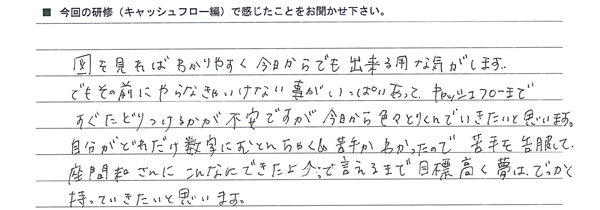 ■ 今回の研修（キャッシュフロー編）で感じたことをお聞かせ下さい。
図を見ればわかりやすく今日からでも出来る用な気がします。
でもその前にやらなきゃいけない事がいっぱいあって、キャッシュフローまで
すぐたどりつけるかが不安ですが今日から色々とりくんでいきたいと思います。
自分がどれだけ数字にむとんちゃく＆苦手かわかったので苦手を告服して、
座間和さんに こんなにできたよ♪って言えるまで目標高く夢はでっかく
持っていきたいと思います。